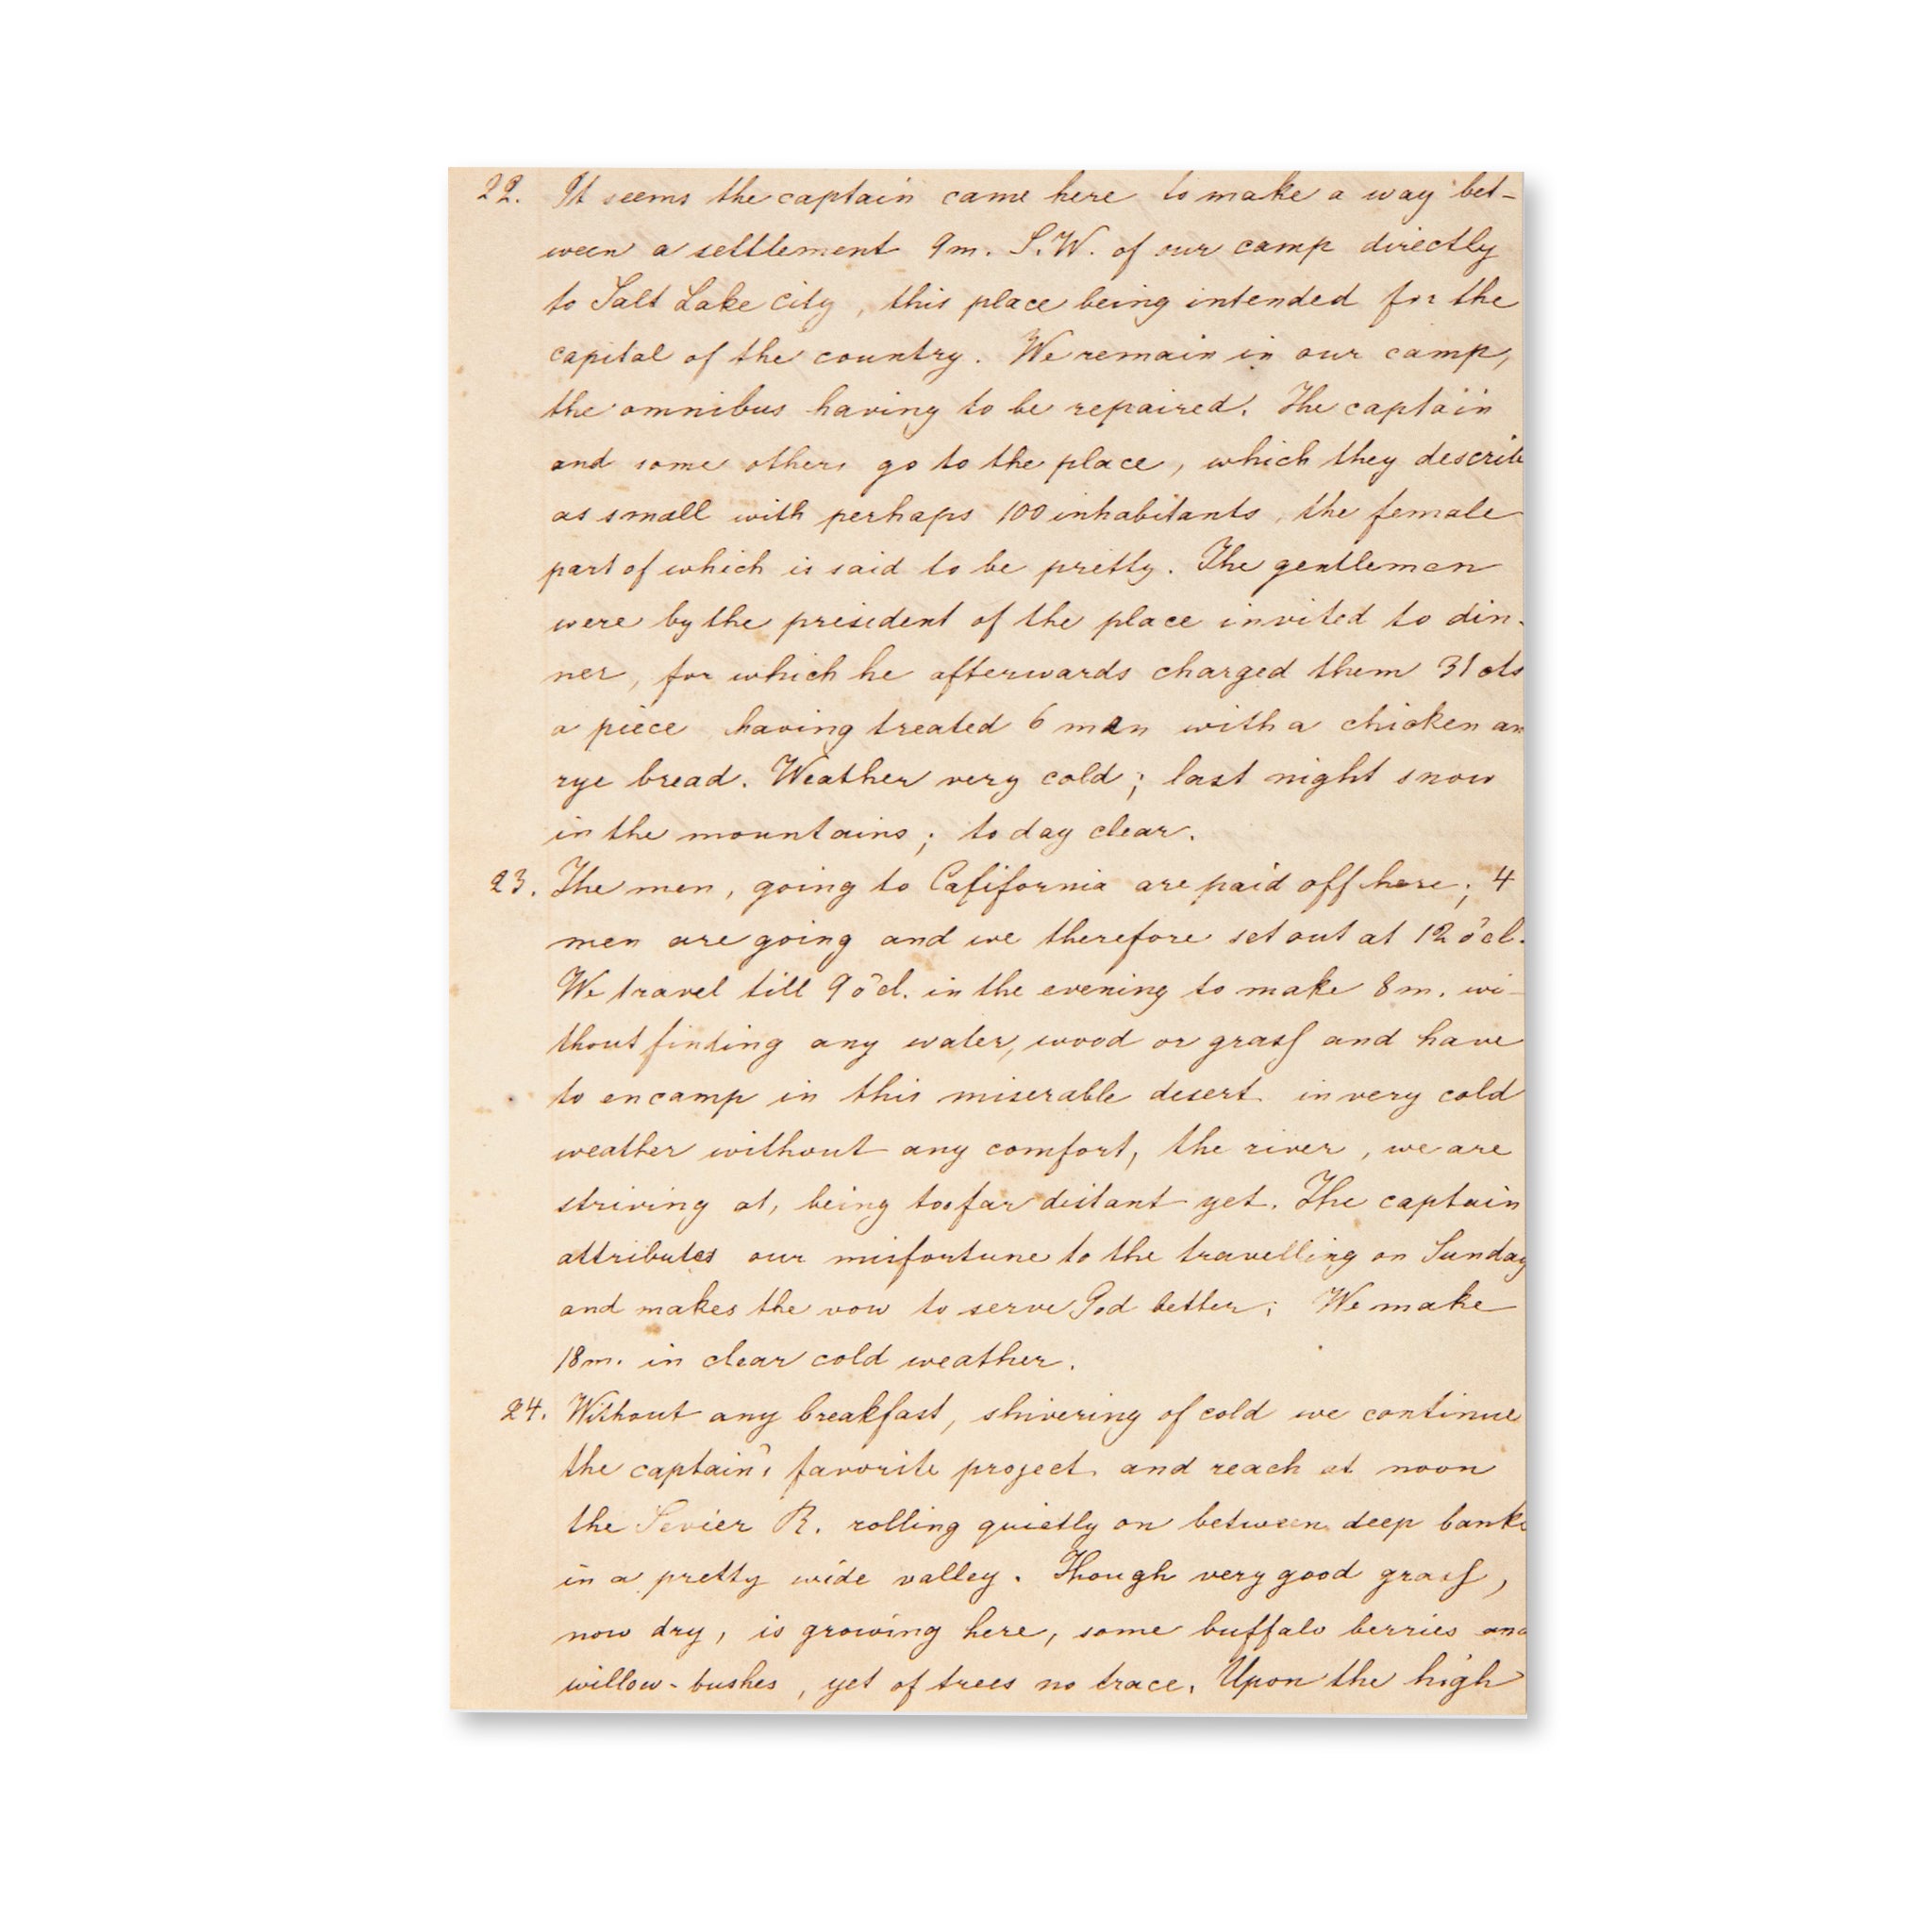 22. It seems the captain came here to make a way bet-
ween a settlement 9m. S.W. of our camp directly
to Salt Lake City, this place being intended for the
capital of the country. We remain in our camp,
the omnibus having to be repaired. The captain
and some others go to the place, which they describ
as small with perhaps 100 inhabitants, the female
part of which is said to be pretty. The gentlemen
were by the president of the place invited to din-
ner, for which he afterwards charged them 31 cts
a piece having treated 6 men with a chicken an
rye bread. Weather very cold; last night snow
in the mountains; to day clear.
23. The men, going to Cafifornia are paid off here; 4
men are going and we therefore set out at 12 o'cl.
We travel till 9 o'cl. in the evening to make 8m. wi-
thout finding any water, wood or grass and have
to encamp in this miserable desert in very cold
weather without any comfort, the river, we are
striving at, being too far distant yet. The captain
attributes our misfortune to the travelling on Sunday
and makes the vow to serve God better; We make
18m. in clear cold weather.
24. Without any breakfast, shivering of cold we continue
the captain's favorite project and reach at noon
the Sevier R. rolling quietly on between deep banks
in a pretty wide valley. Though very good grass,
now dry, is growing here, some buffalo berries and
willow-bushes, yet of trees no trace. Upon the high